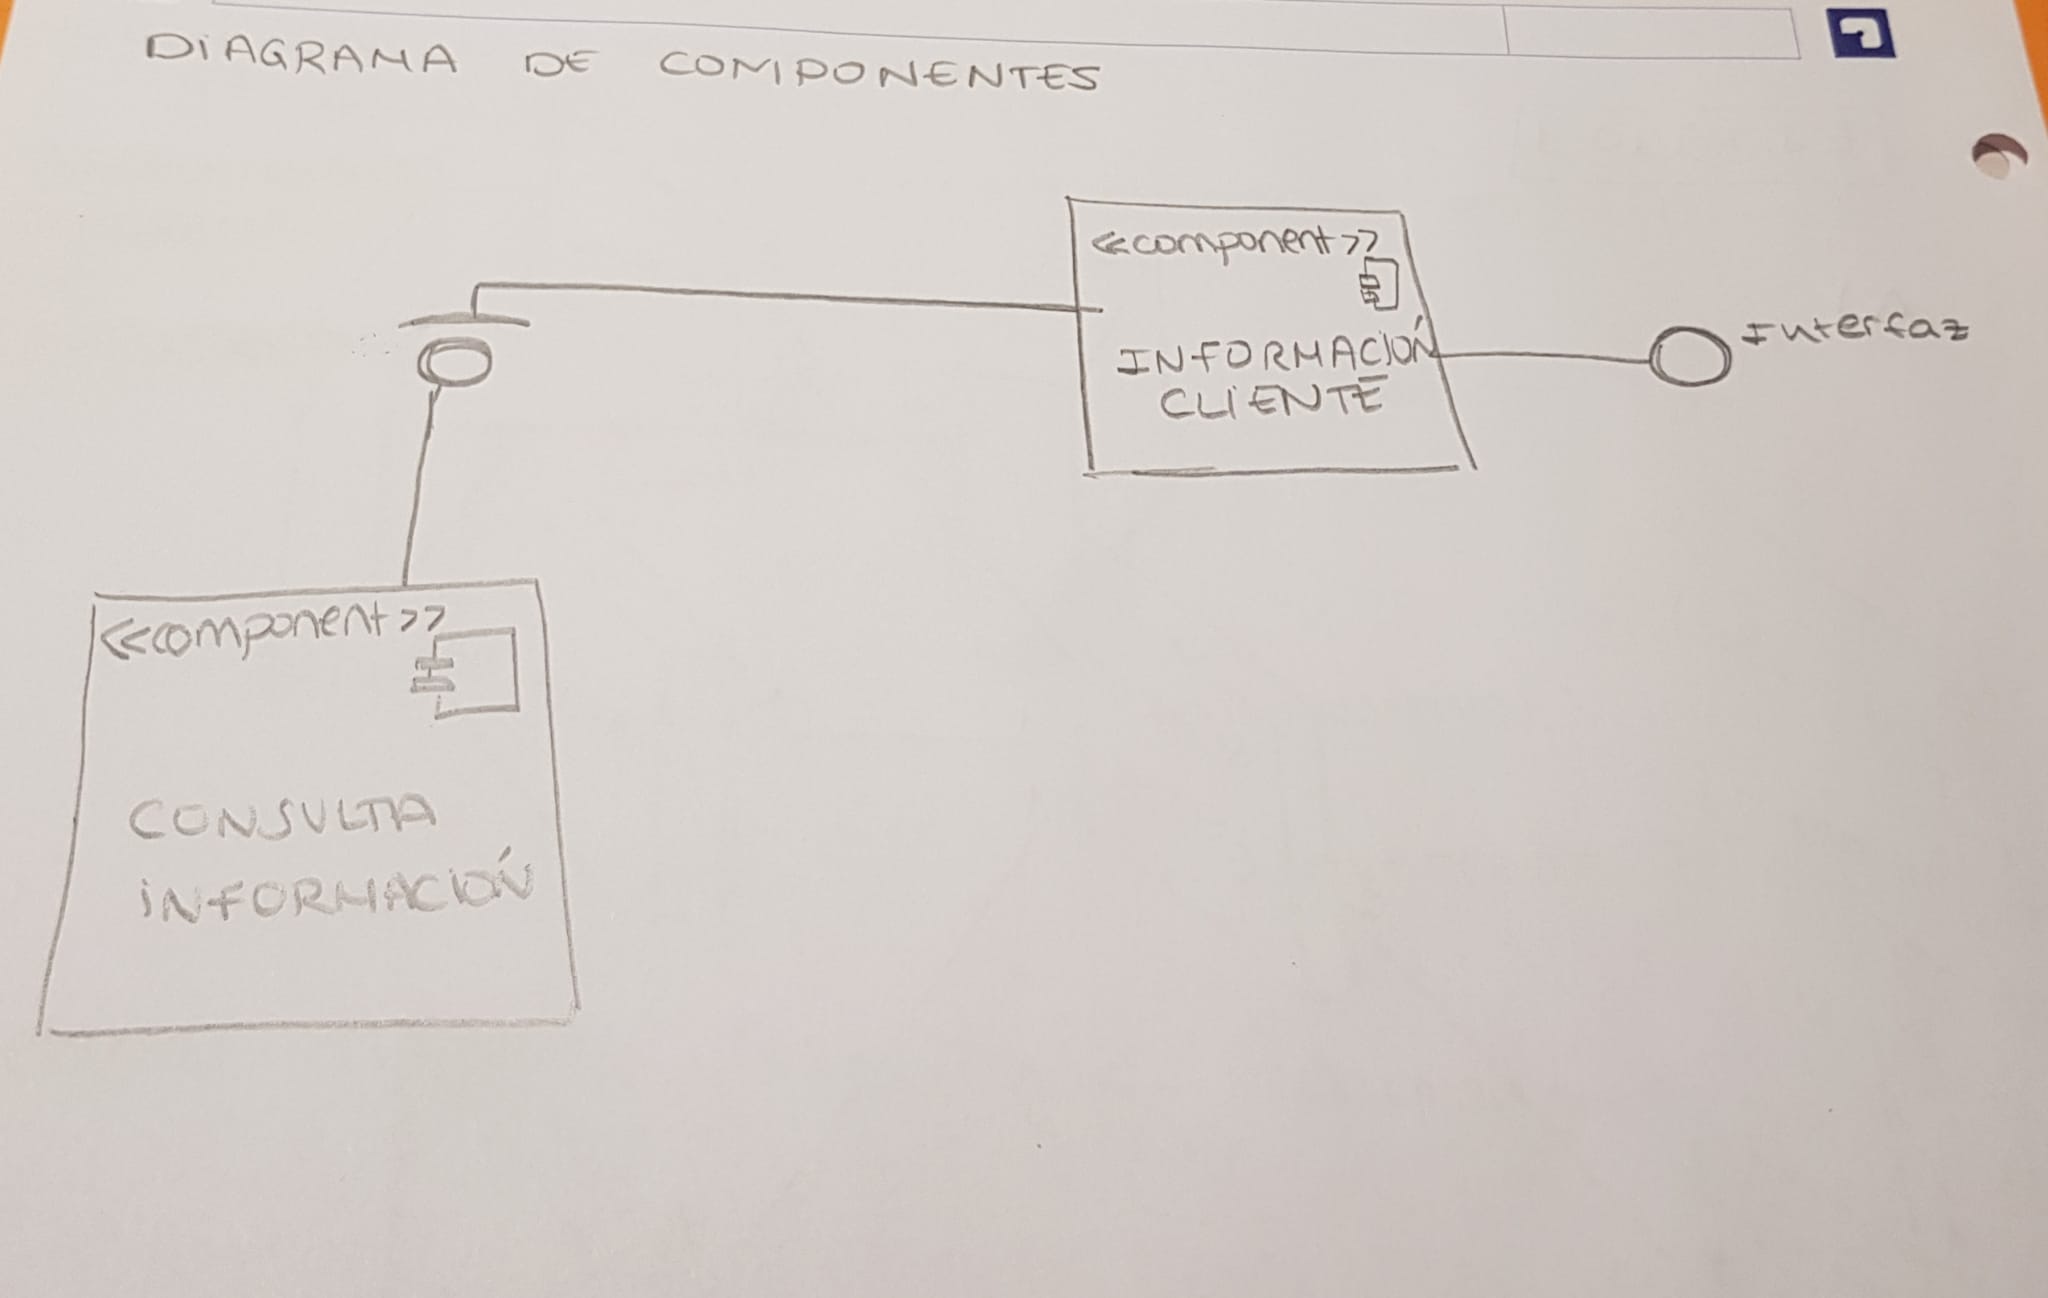 DIAGRAMA DE COMPONENTES
<<component>>
INFORMACIÓN
CLIENTE
Interfaz
<<component>>
CONSULTA
INFORMACIÓN